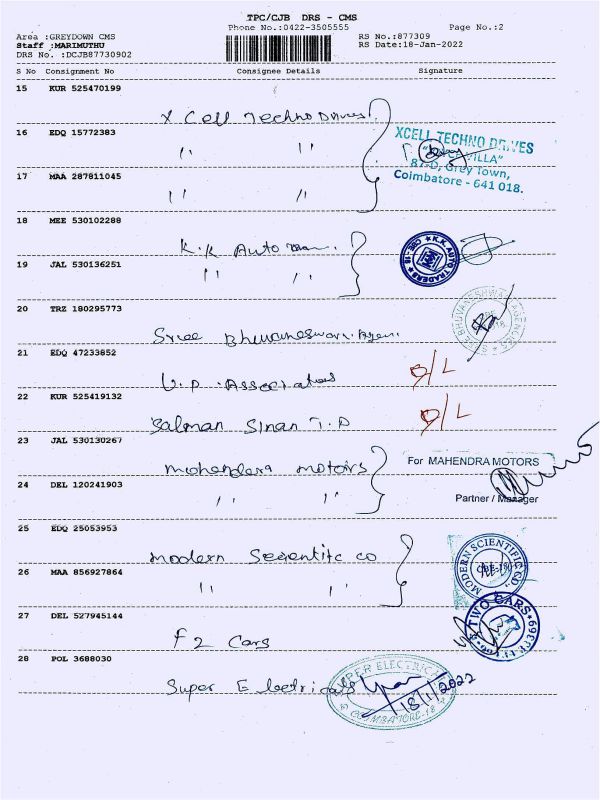 TPC/CJB DRS - CMS
Phone No.:0422-3505555 Page No.:2
Area :GREYDOWN CMS RS No.:877309
Staff :MARIMUTHU RS Date:18-Jan-2022
DRS No. :DCJB87730902
S No Consignment No Consignee Details Signature
15 KUR 525470199
X Cell Techno Drives.
16 EDQ 15772383
XCELL TECHNO DRIVES
" "
VILLA"
87-D, Grey Town,
17 MAA 287811045
Coimbatore - 641 018.
" "
18 MEE 530102288
K.K Auto
K.K. AUTO TRADERS CBE-18
19 JAL 530136251
" "
20 TRZ 180295773
SREE BHUVANESHWARI AGENCIES
Sree Bhuvaneswari Agen.
21 EDQ 47233852
V.P. Associates D/L
22 KUR 525419132
Salman Sinan T.P D/L
23 JAL 530130267
Mahendera motors For MAHENDRA MOTORS
24 DEL 120241903
" " Partner / Manager
25 EDQ 25053953
Modern Scientific co
MODERN SCIENTIFIC CO.,
26 MAA 856927864
" "
27 DEL 527945144
TWO CARS
F2 Cars
28 POL 3688030
SUPER ELECTRICALS
Super Electricals 18/1/2022
COIMBATORE-18